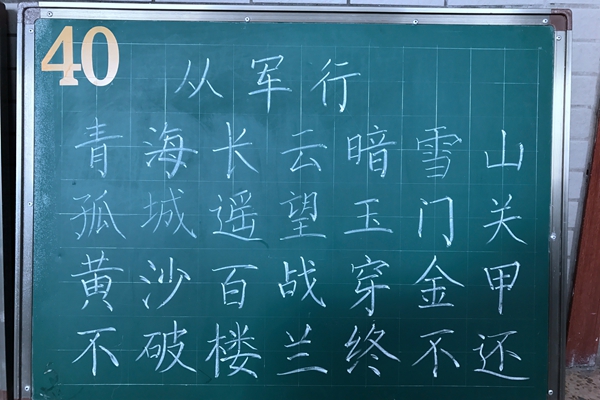 40
从军行
青海长云暗雪山
孤城遥望玉门关
黄沙百战穿金甲
不破楼兰终不还